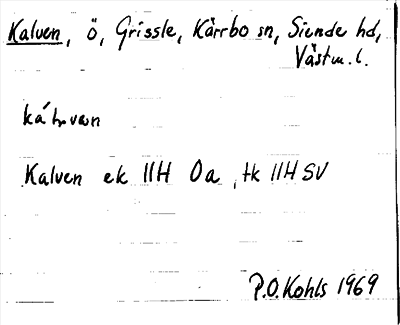 Kalven, ö, Grissle, Kärrbo sn, Siende hd,
Västm. l.
Kalven ek 11H 0a, tk 11H SV
P.O. Kohls 1969